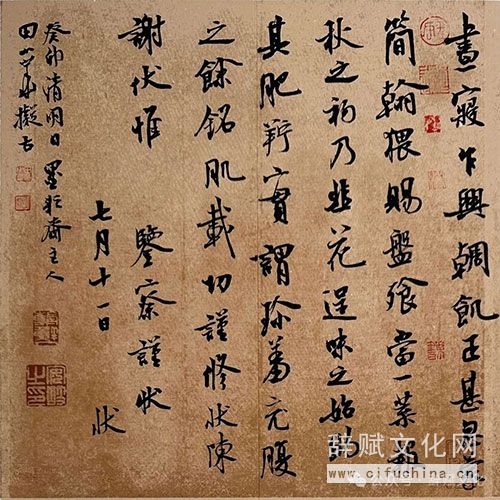 晝寢乍興輖飢正甚忽蒙
簡翰猥賜盤飧當一葉報
秋之初乃韭花逞味之始助
其肥羜實謂珍羞充腹
之餘銘肌載切謹修狀陳
謝伏惟 鑒察謹狀
七月十一日 狀
癸卯清明日墨齋主人
田擬古
辞赋文化网
www.cifuchina.com